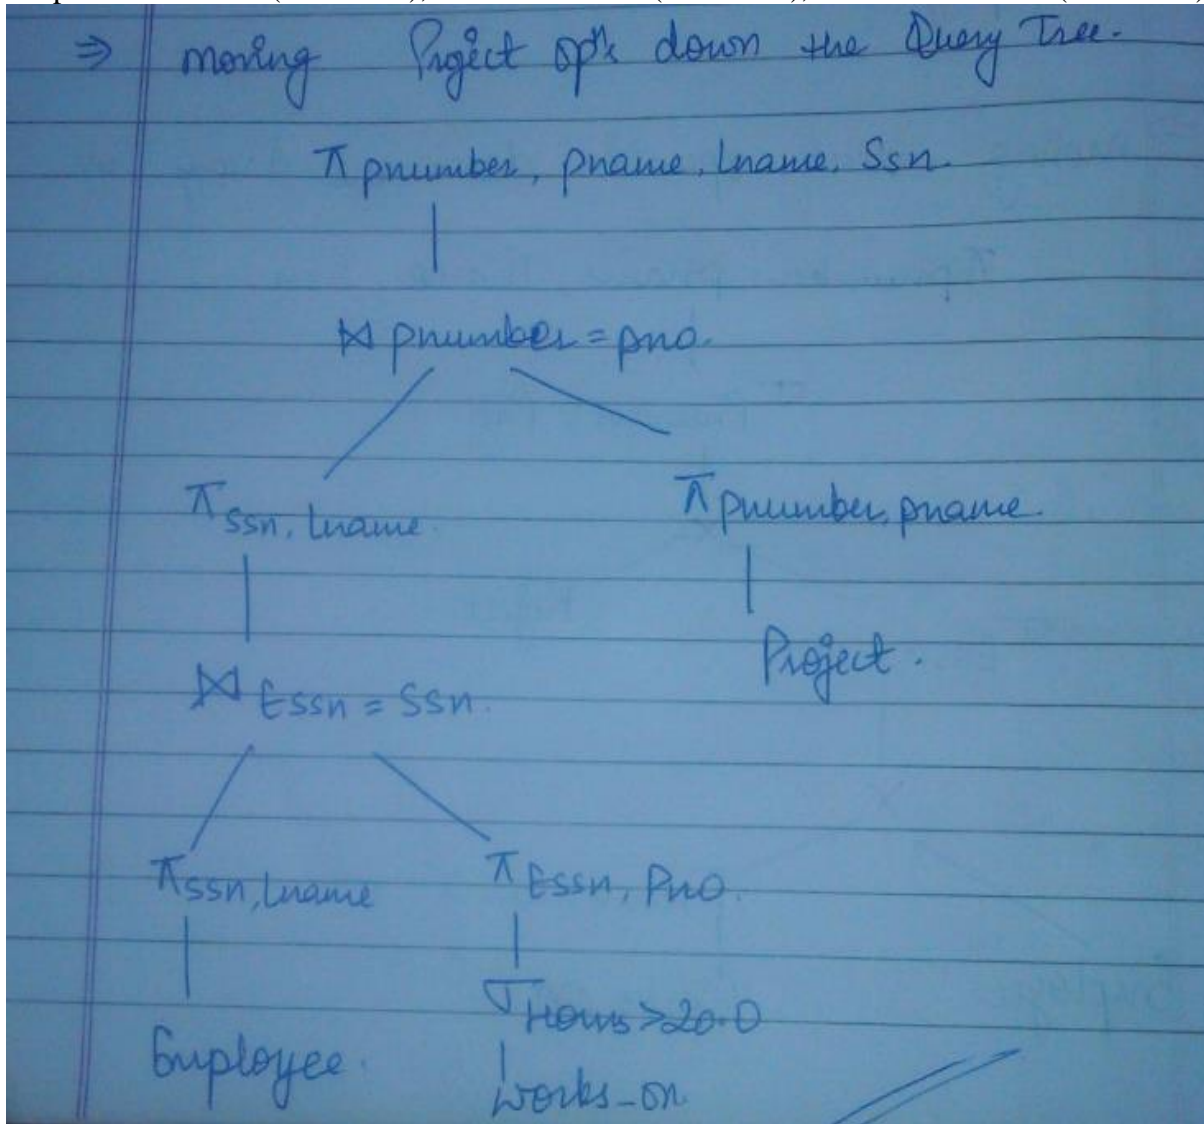 ⇒ moving Project opⁿs down the Query Tree.
π pnumber, pname, Lname, Ssn.
⋈ pnumber = pno.
π ssn, Lname.
π pnumber, pname.
Project.
⋈ Essn = Ssn.
π ssn, Lname
π Essn, Pno.
σ Hours>20.0
Employee.
works_on